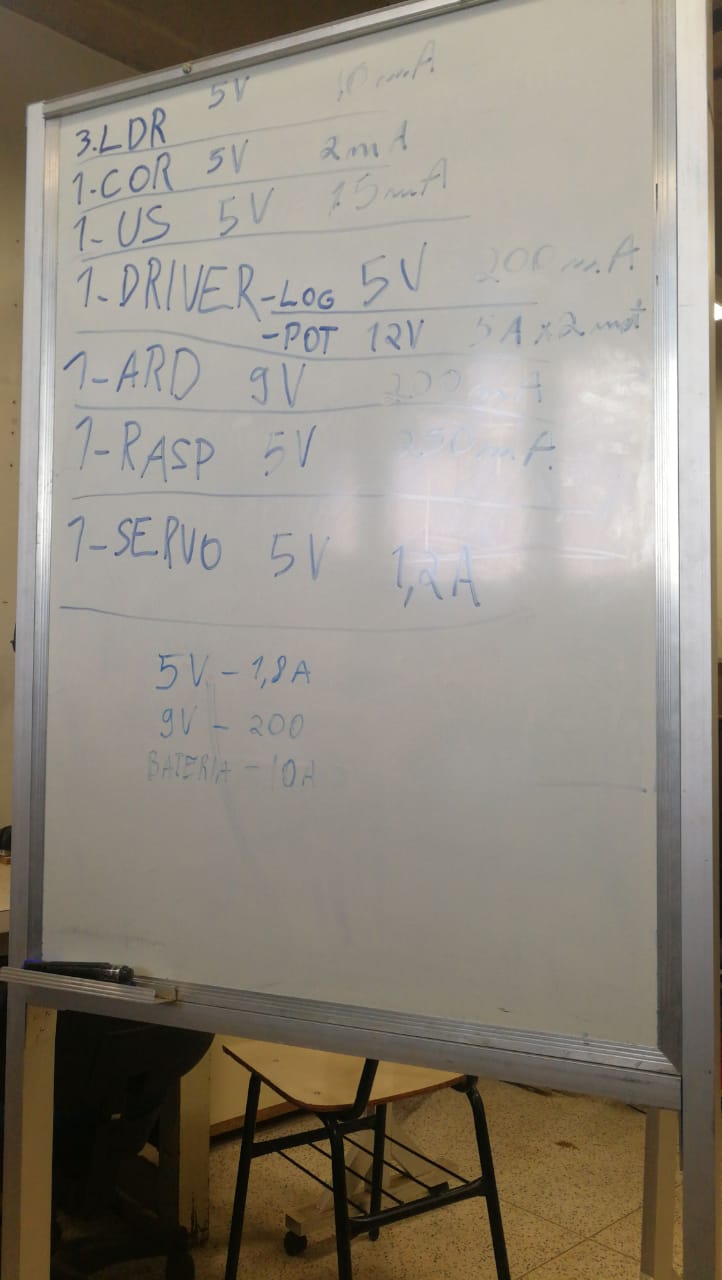 3.LDR 5V 10mA
1-COR 5V 2mA
1-US 5V 15mA
1-DRIVER-LOG 5V 200mA
-POT 12V 5A x 2 mot
1-ARD 9V 200mA
1-RASP 5V 250mA
1-SERVO 5V 1,2A
5V-1,8A
9V-200
BATERIA-10A